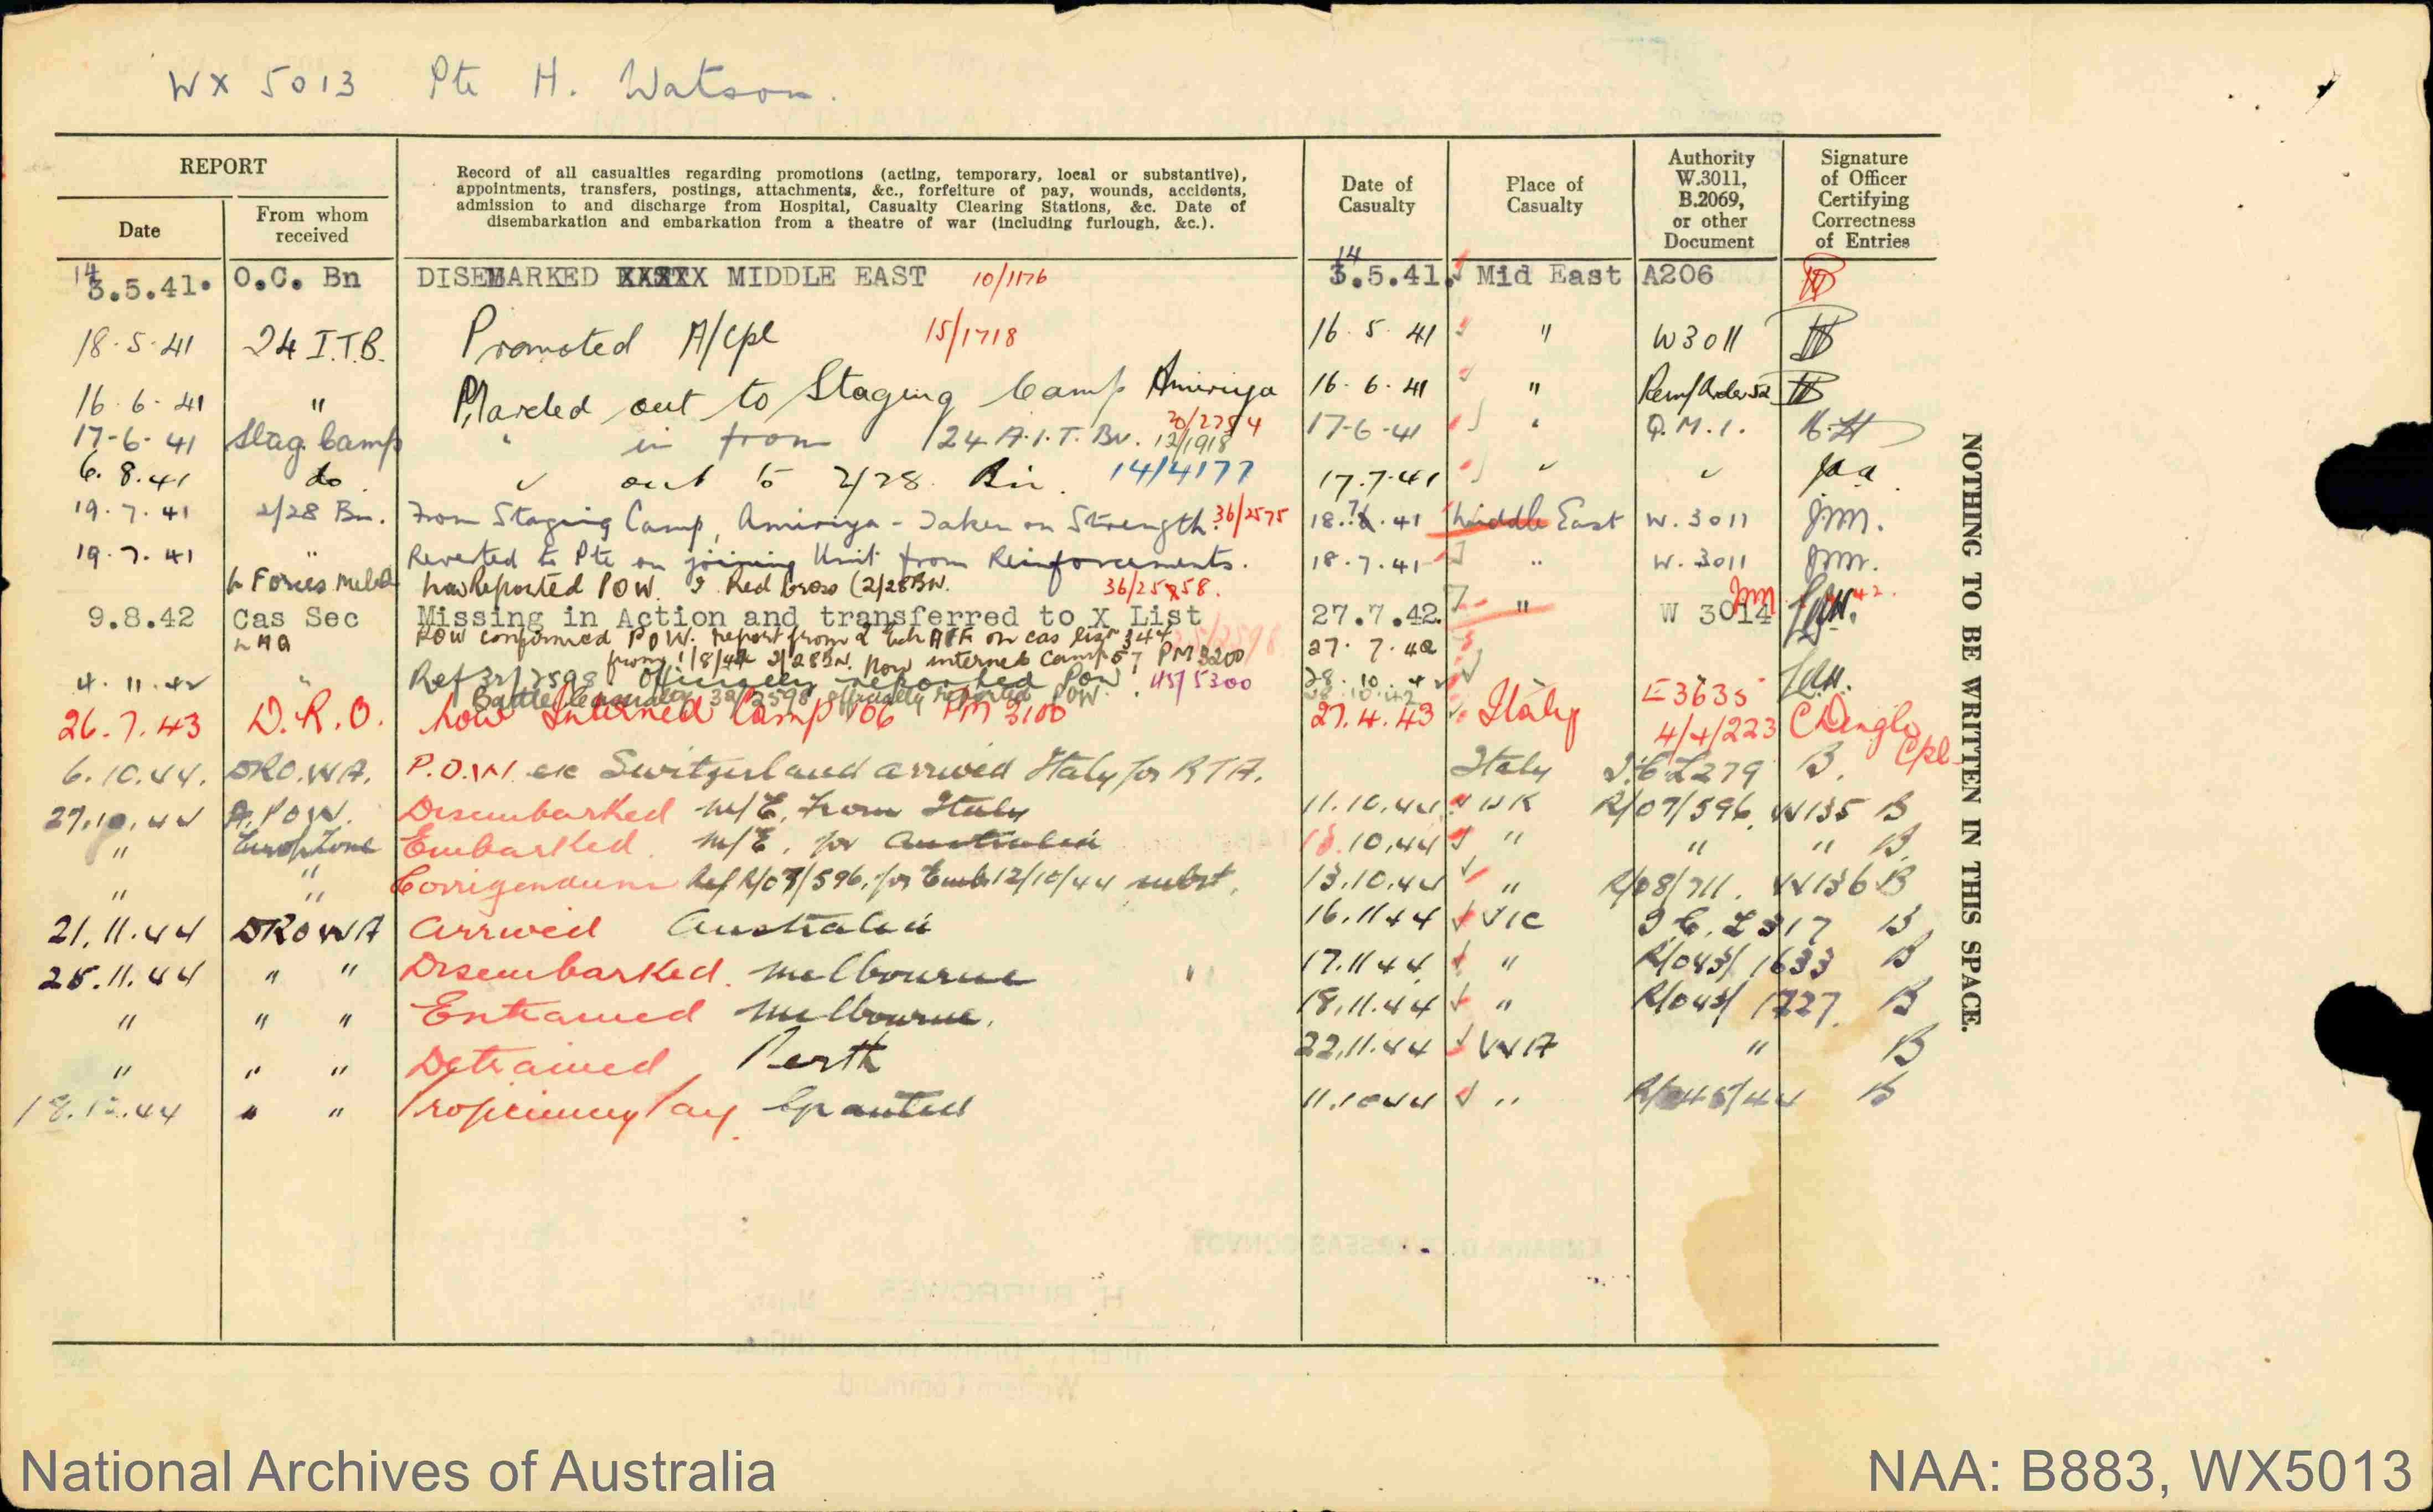 WX 5013 Pte H. Watson.
REPORT
Date
From whom received
Record of all casualties regarding promotions (acting, temporary, local or substantive),
appointments, transfers, postings, attachments, &c., forfeiture of pay, wounds, accidents,
admission to and discharge from Hospital, Casualty Clearing Stations, &c. Date of
disembarkation and embarkation from a theatre of war (including furlough, &c.).
Date of Casualty
Place of Casualty
Authority W.3011, B.2069, or other Document
Signature of Officer Certifying Correctness of Entries
14
14
3.5.41. O.C. Bn DISEMBARKED MIDDLE EAST 10/1176 3.5.41. Mid East A206
18.5.41 24 I.T.B. Promoted A/Cpl 15/1718 16.5.41 " W3011
16.6.41 " Marched out to Staging Camp Amiriya 16.6.41 "
17-6-41 Stag. Camp " in from 24 A.I.T. Bn. 12/1918 17-6-41 " Q.M.1.
6.8.41 do out to 2/28 Bn. 14/4177 17.7.41
19.7.41 2/28 Bn. From Staging Camp, Amiriya - Taken on Strength. 36/2575 18.7.41 Middle East W.3011 JMM.
19.7.41 " Reverted to Pte on joining Unit from Reinforcements. 18.7.41 " W.3011 JMM.
Forces Melb now Reported POW. Red Cross (2/28 BN. 36/25858.
9.8.42 Cas Sec Missing in Action and transferred to X List 27.7.42. " W 3014
LHQ POW confirmed P.O.W. report from 2 Ech AIF on cas list 344 27.7.42
from 2/28 BN. Now interned Camp 57 PM 3200
4.11.42 " Ref 32/2598 Officially reported POW 45/5300 28.10.42
Battle Casualty 32/2598 officially reported POW. 28.10.42
26.7.43 D.R.O. now Interned Camp 106 PM 3100 27.4.43 Italy E3635 4/4/223 Cpl
6.10.44. DRO.WA. P.O.W. ex Switzerland arrived Italy for RTA. Italy L279 B.
27.10.44 A.POW. Disembarked M/E. from Italy 11.10.44 UK R/07/596. W135 B
" Europ Zone Embarked M/E. for Australia 10.44 " " " B
" " Corrigendum Ref R/07/596. for Emb. 12/10/44 subst. 13.10.44 " R/08/711. W136 B
21.11.44 DROWA Arrived Australia 16.11.44 VIC L317 B
25.11.44 " " Disembarked. Melbourne 17.11.44 " R/043/1633 B
" " " Entrained Melbourne. 18.11.44 " R/043/1727. B
" " " Detrained Perth 22.11.44 WA " B
18.12.44 " " Proficiency Pay Granted 11.10.44 " B
NOTHING TO BE WRITTEN IN THIS SPACE.
National Archives of Australia
NAA: B883, WX5013